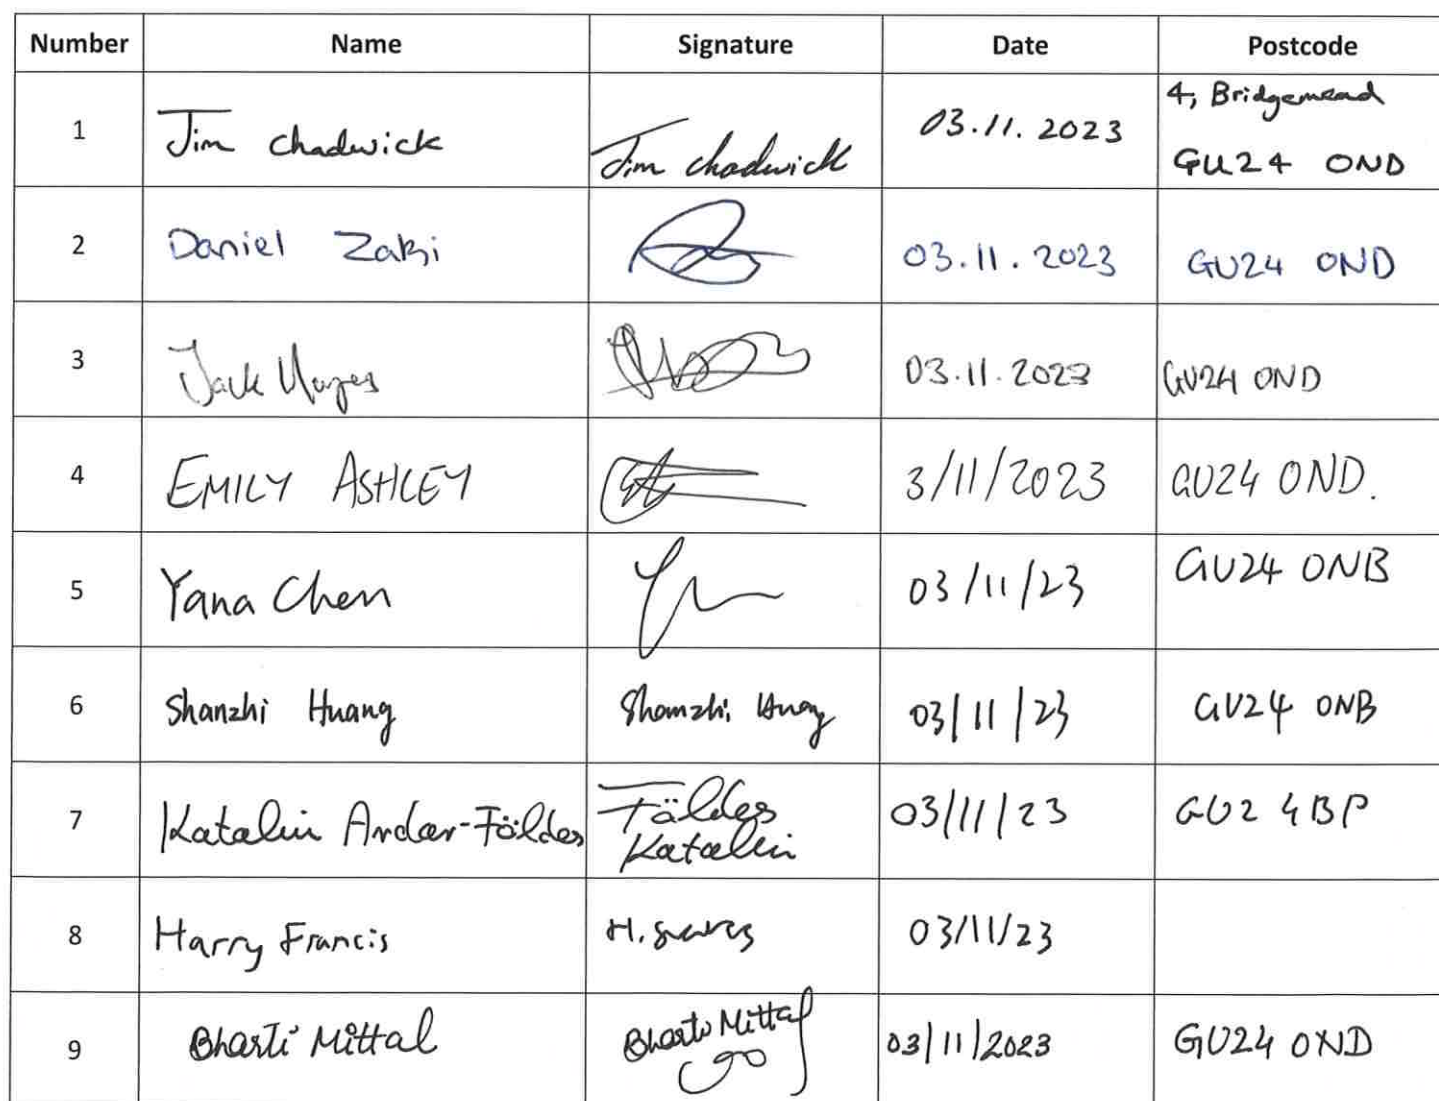 Number Name Signature Date Postcode
1 Jim Chadwick Jim Chadwick 03.11.2023 4, Bridgemead
GU24 0ND
2 Daniel Zaki 03.11.2023 GU24 0ND
3 Jack 03.11.2023 GU24 0ND
4 EMILY ASHLEY 3/11/2023 GU24 0ND.
5 Yana Chen 03/11/23 GU24 0NB
6 Shanzhi Huang Shanzhi Huang 03/11/23 GU24 0NB
7 Katalin Andor-Földes Földes
Katalin 03/11/23 GU2 4BP
8 Harry Francis H. 03/11/23
9 Bharti Mittal Bharti Mittal 03/11/2023 GU24 0ND